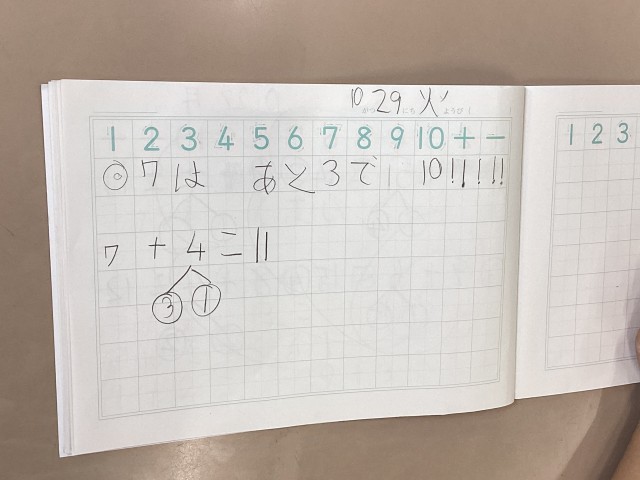 10がつ29にち火ようび
1 2 3 4 5 6 7 8 9 10 + −
◎7は あと3で 10!!!!!
7+4=11
③①
1 2 3